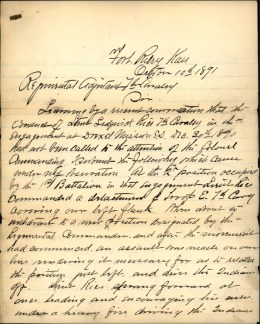 Fort Riley Kas
10th 1891
Regimental Adjutant 7th Cavalry
Sir
Learning by a recent conversation that the
conduct of Lieut Sedgwick Rice 7th Cavalry in the
engagement at Drexel Mission S.D. Dec. 30th 1890
had not been called to the attention of the Colonel
Commanding I submit the following which came
under my observation. At the 2d position occupied
by the 1st Battalion in that engagement Lieut Rice
commanded a detachment of Troop E 7th Cavy
covering our left flank. When about to
withdraw to a new position designated by the
Regimental Commander and after the movement
had commenced, an assault was made on our
line rendering it necessary for us to retake
the position just left, and drive the Indians
off. Lieut Rice sprang forward at
once leading and encouraging his men
under a heavy fire driving the Indians